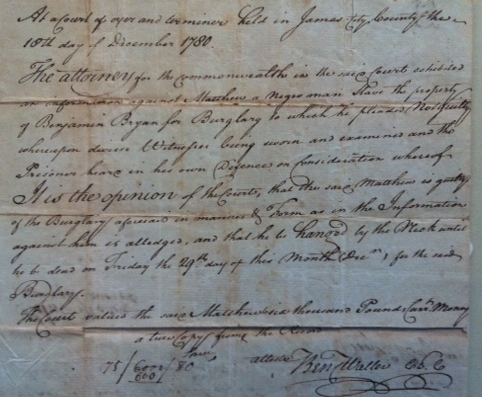 At a Court of oyer and terminer held in James City County the
18th day of December 1780.
The attorney for the commonwealth in the said Courts exhibited
an information against Matthew a Negro man Slave the property
of Benjamin Bryan for Burglary to which he pleaded Not guilty
whereupon diverse Witnesses being sworn and examined and the
Prisoner heard in his own Defence on Consideration whereof
It is the opinion of the Courts, that the said Matthew is guilty
of the Burglary aforesaid in manner & Form as in the Information
against him is alledged, and that he be hanged by the Neck until
he be dead on Friday the 29th day of this Month (Decr), for the said
Burglary.
The Court values the said Matthew six thousand Pounds Curr Money
a true Copy from the Record
75/6000/80
600
attests Ben Waller